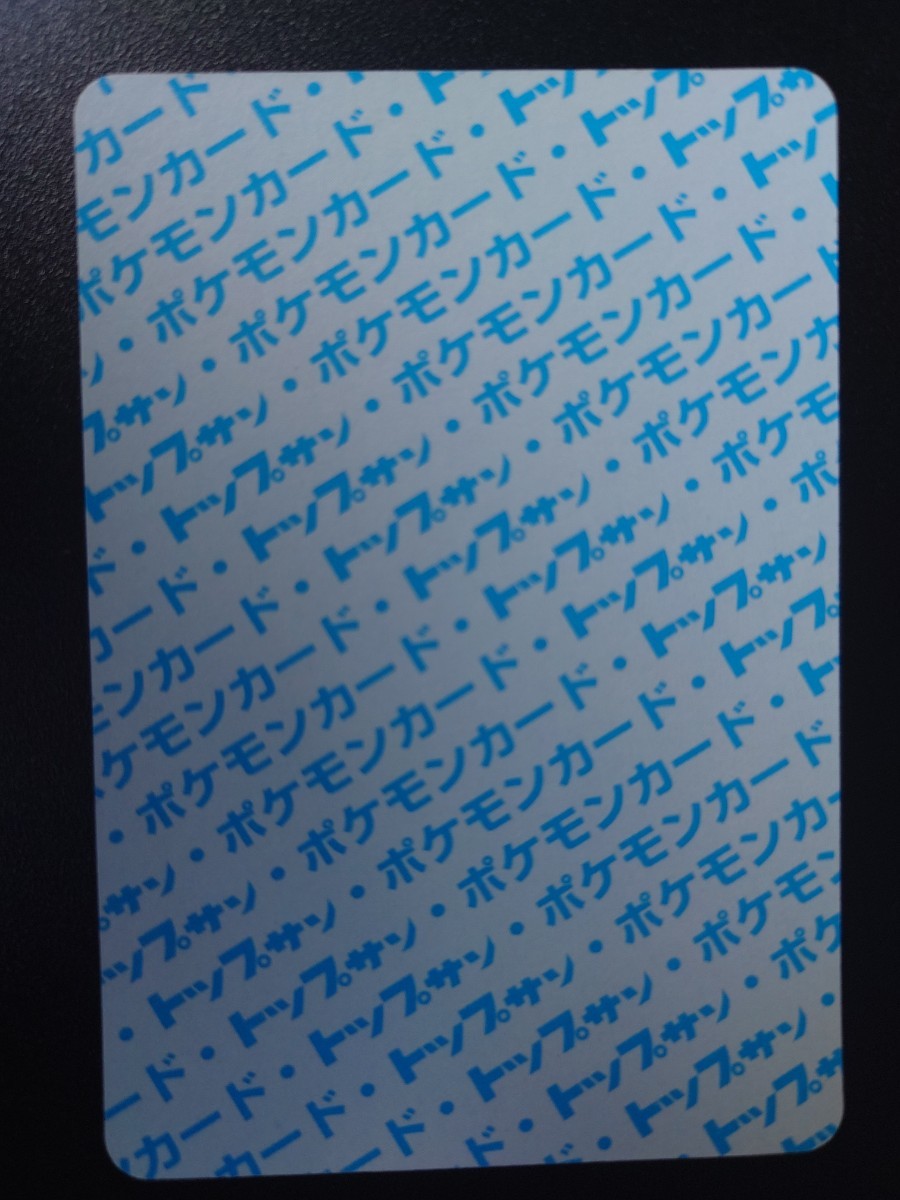 カード・ト
モンカード・ト
ポケモンカード・トッ
ン・ポケモンカード・トップ
プサン・ポケモンカード・トップサ
トップサン・ポケモンカード・トッ
ド・トップサン・ポケモンカード・ト
カード・トップサン・ポケモンカード
モンカード・トップサン・ポケモンカ
ポケモンカード・トップサン・ポケモ
・ポケモンカード・トップサン・ポ
サン・ポケモンカード・トップサン
ップサン・ポケモンカード・トップ
・トップサン・ポケモンカード・ト
ード・トップサン・ポケモンカード
カード・トップサン・ポケモンカ
カード・トップサン・ポケモン
ド・トップサン・ポケ
・トップサン・
トップサ